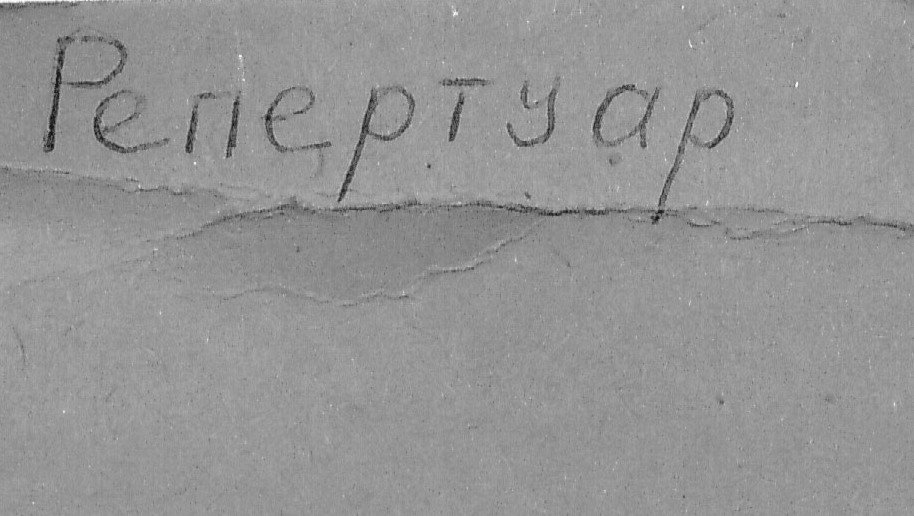 Репертуар